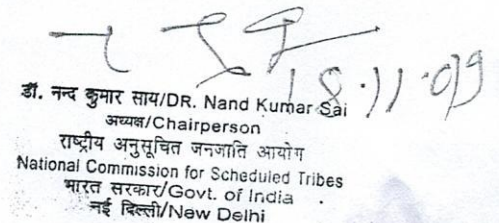 18.11.019
डॉ. नन्द कुमार साय/DR. Nand Kumar Sai
अध्यक्ष/Chairperson
राष्ट्रीय अनुसूचित जनजाति आयोग
National Commission for Scheduled Tribes
भारत सरकार/Govt. of India
नई दिल्ली/New Delhi